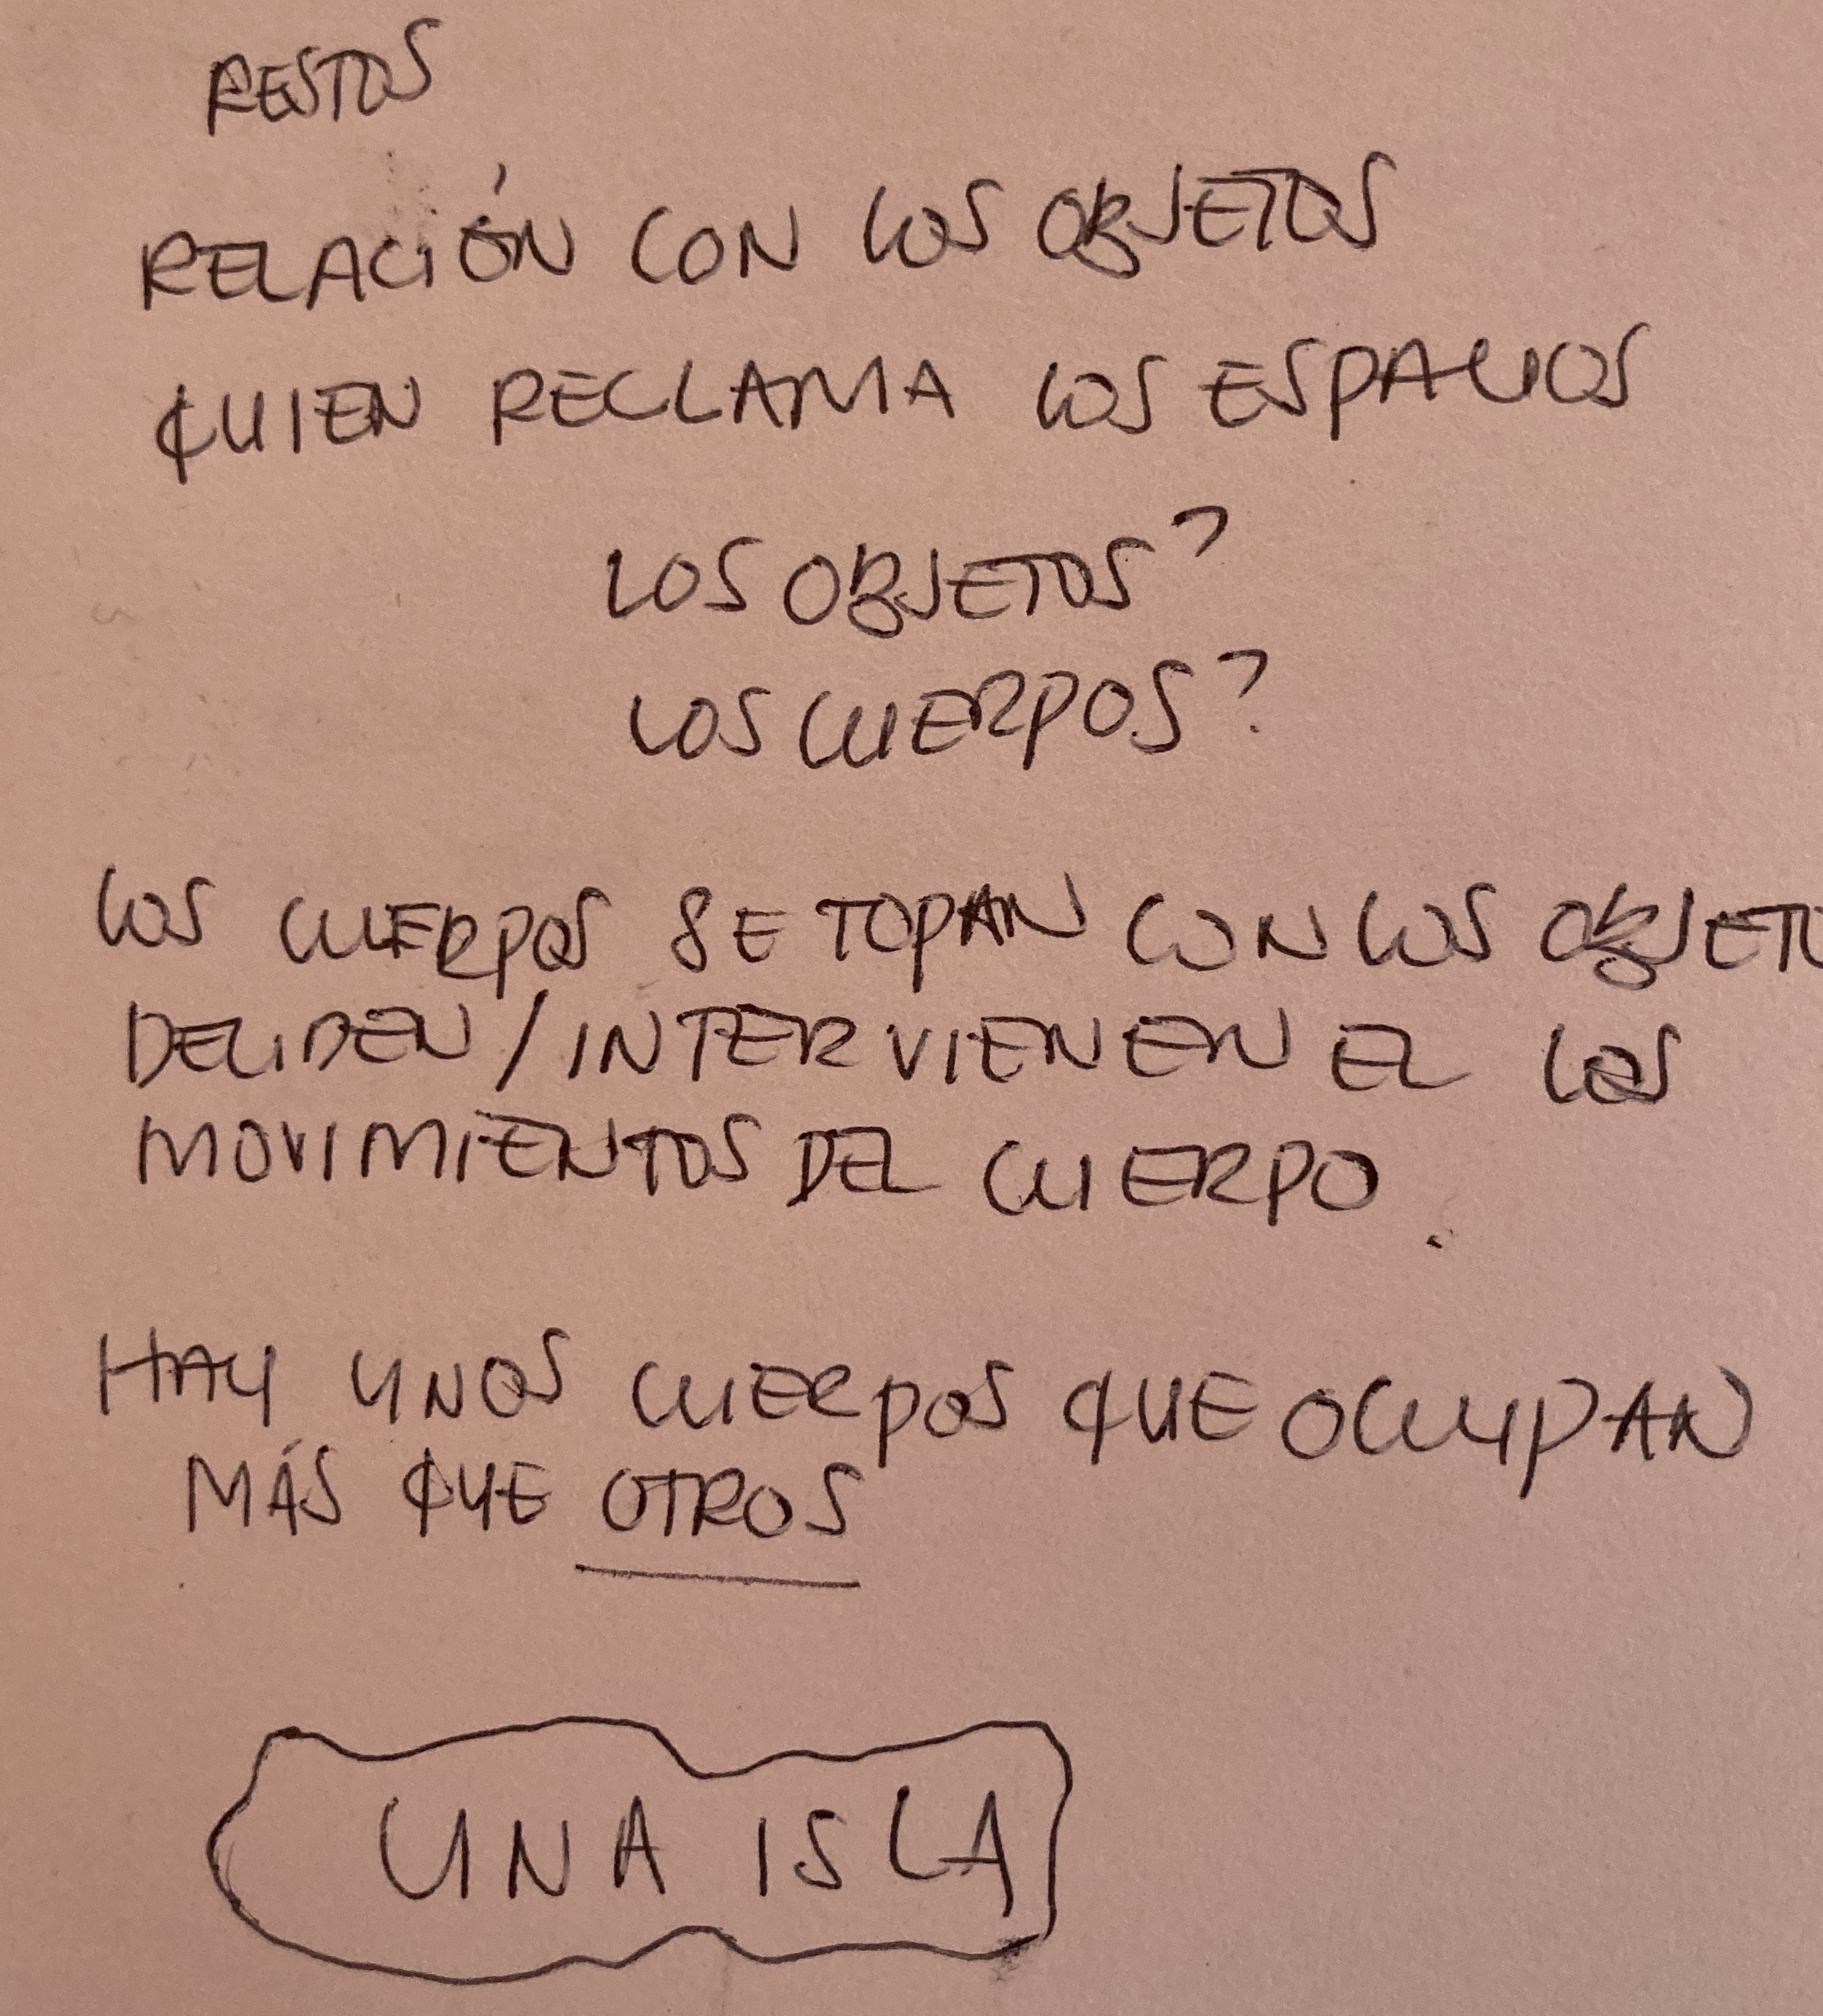 RESTOS
RELACIÓN CON LOS OBJETOS
QUIEN RECLAMA LOS ESPACIOS
LOS OBJETOS?
LOS CUERPOS?
LOS CUERPOS SE TOPAN CON LOS OBJETO
DECIDEN / INTERVIENEN EN EL LOS
MOVIMIENTOS DEL CUERPO.
HAY UNOS CUERPOS QUE OCUPAN
MÁS QUE OTROS
UNA ISLA